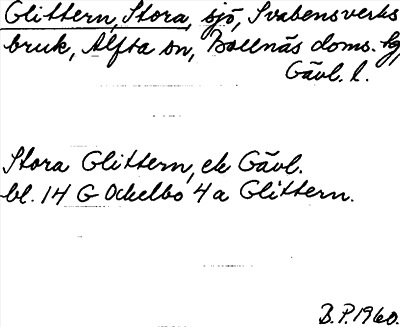 Glittern, Stora, sjö, Svabensverks
bruk, Alfta sn, Bollnäs doms. hg,
Gävl. l.
Stora Glittern, ek Gävl.
bl. 14 G Ockelbo 4 a Glittern.
B. P. 1960.